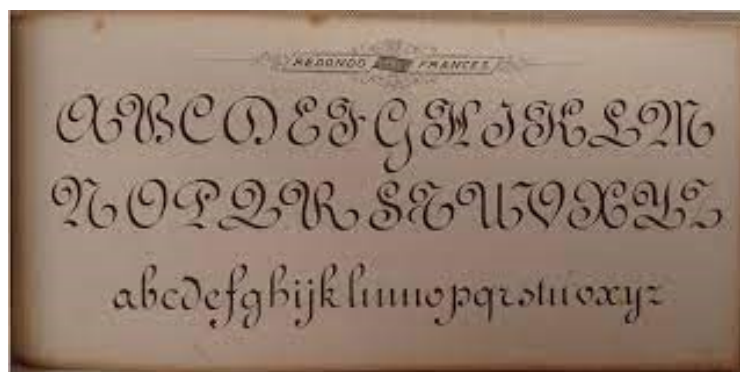 REDONDO FRANCES
A B C D E F G H I K L M
N O P Q R S T U V X Y Z
a b c d e f g h i j k l m n o p q r s t u v x y z